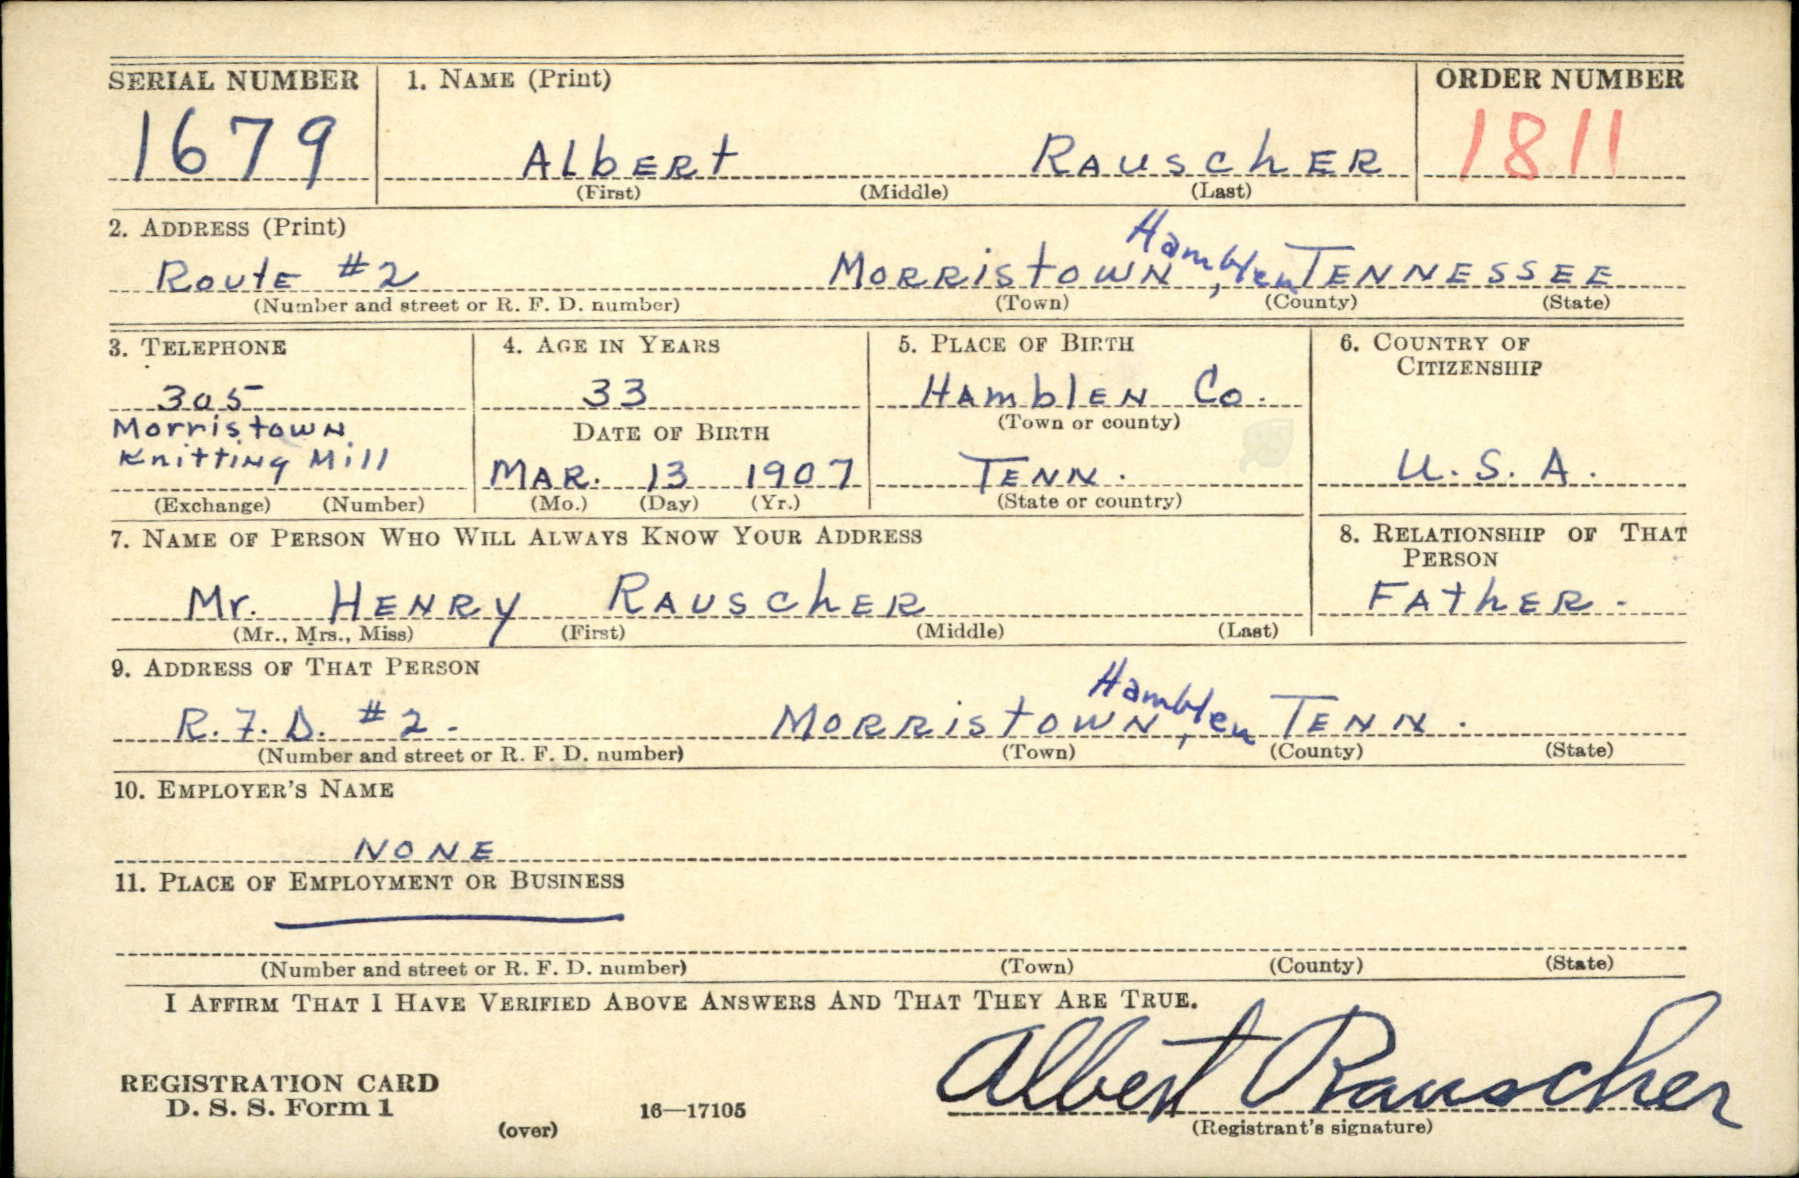 SERIAL NUMBER 1. NAME (Print) ORDER NUMBER
1679 Albert Rauscher 1811
(First) (Middle) (Last)
2. ADDRESS (Print)
Route #2 Morristown, Hamblen Tennessee
(Number and street or R. F. D. number) (Town) (County) (State)
3. TELEPHONE 4. AGE IN YEARS 5. PLACE OF BIRTH 6. COUNTRY OF
CITIZENSHIP
305 33 Hamblen Co.
Morristown DATE OF BIRTH (Town or county)
Knitting Mill Mar. 13 1907 Tenn. U.S.A.
(Exchange) (Number) (Mo.) (Day) (Yr.) (State or country)
7. NAME OF PERSON WHO WILL ALWAYS KNOW YOUR ADDRESS 8. RELATIONSHIP OF THAT
PERSON
Mr. Henry Rauscher Father.
(Mr., Mrs., Miss) (First) (Middle) (Last)
9. ADDRESS OF THAT PERSON
R.F.D. #2. Morristown, Hamblen Tenn.
(Number and street or R. F. D. number) (Town) (County) (State)
10. EMPLOYER'S NAME
None
11. PLACE OF EMPLOYMENT OR BUSINESS
(Number and street or R. F. D. number) (Town) (County) (State)
I AFFIRM THAT I HAVE VERIFIED ABOVE ANSWERS AND THAT THEY ARE TRUE.
REGISTRATION CARD Albert Rauscher
D. S. S. Form 1 16—17105
(over) (Registrant's signature)